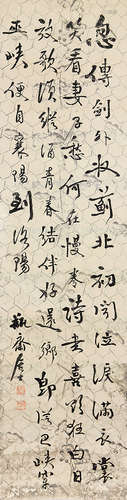 忽傳劍外收薊北初聞泣淚滿衣裳
笑看妻子愁何在慢卷詩書喜欲狂白日
放歌須縱酒青春結伴好還鄉即從巴峽穿
巫峽便自襄陽到洛陽
瓶齋居士